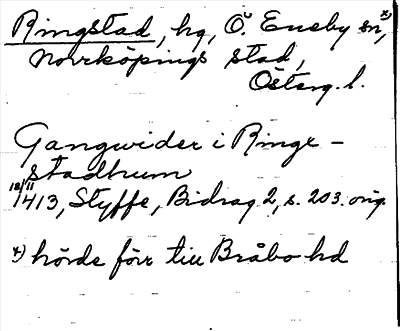 Ringstad, hg, Ö. Eneby sn, x)
Norrköpings stad,
Österg. l.
Gangwider i Ringe-
stadhum
18/11 1413, Styffe, Bidrag 2, s. 203. orig.
x) hörde förr till Bråbo hd